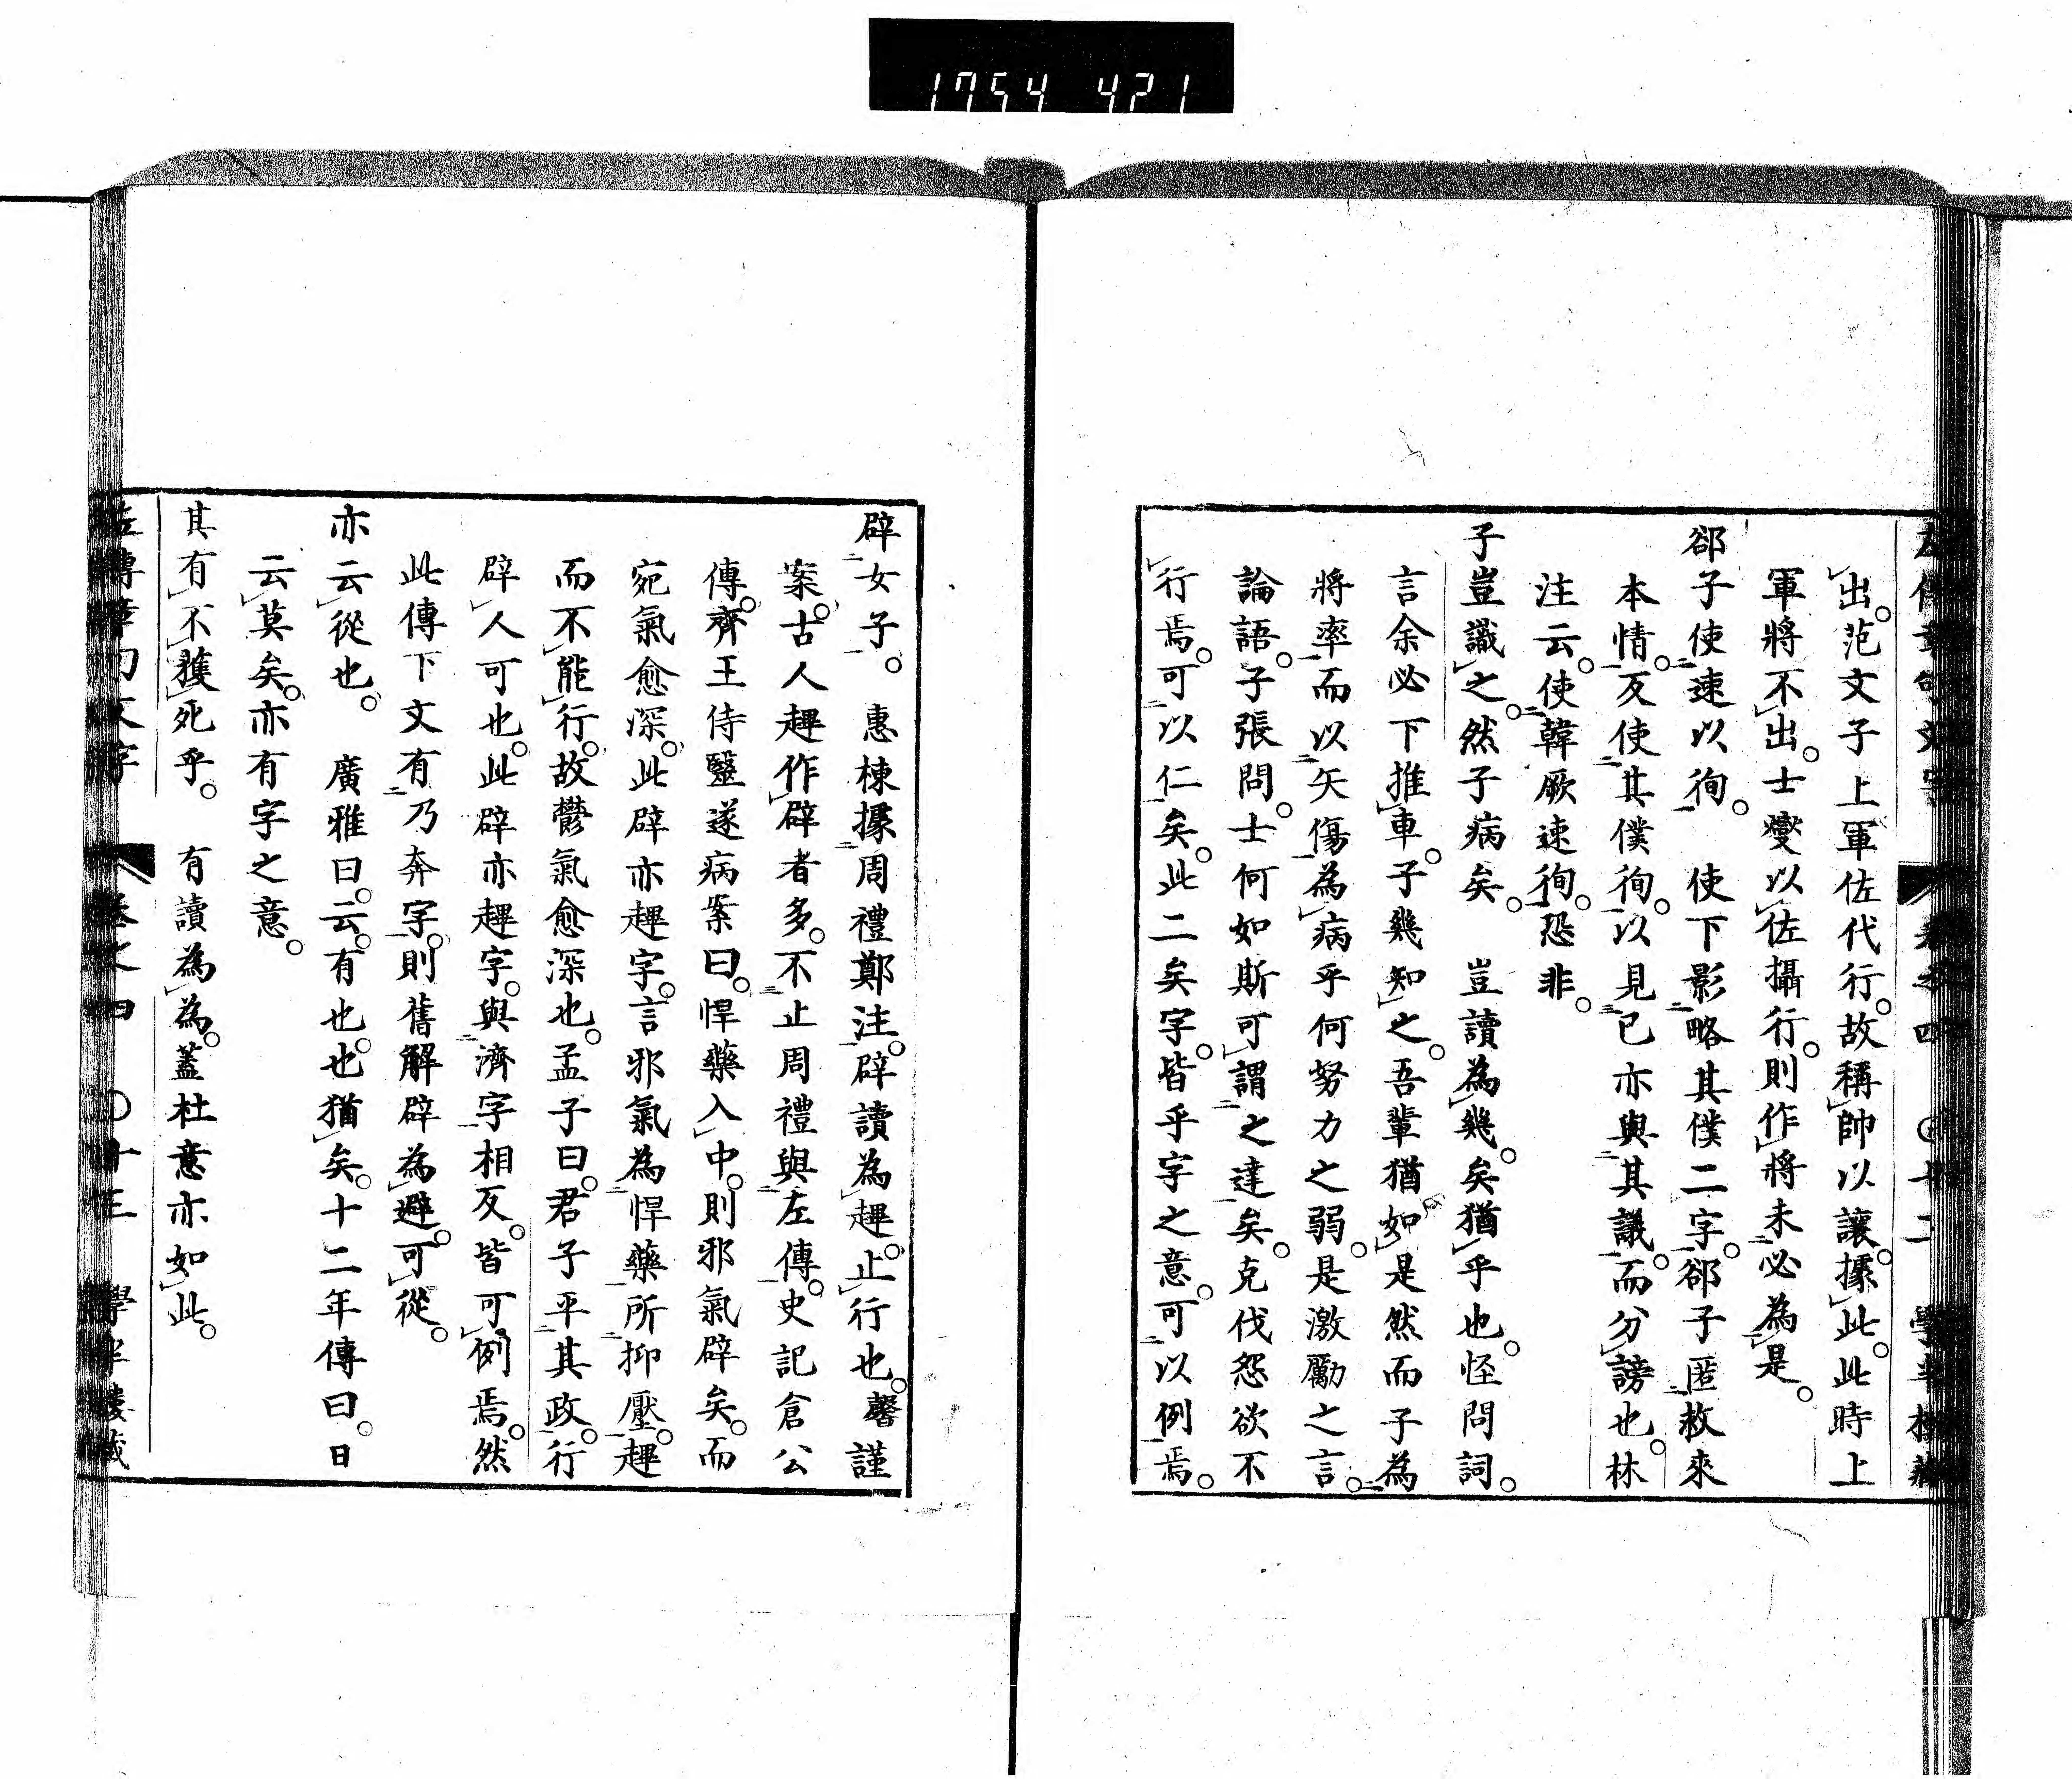 1754 421
左傳章句文字 卷之四 〇十二 學半樓藏
出。范文子上軍佐代行。故稱帥以讓。據此。此時上
軍將不出。士燮以佐攝行。則作將未必為是。
郤子使速以徇。 使下影略其僕二字。郤子匿救來
本情。反使其僕徇。以見已亦與其議。而分謗也。林
注云。使韓厥速徇。恐非。
子豈識之。然子病矣。 豈讀為幾。矣猶乎也。怪問詞。
言余必下推車。子幾知之。吾輩猶如是然。而子為
將率而以矢傷為病乎。何努力之弱。是激勵之言。
論語。子張問。士何如斯可謂之達矣。克伐怨欲不
行焉。可以仁矣。此二矣字。皆乎字之意。可以例焉。
辟女子。 惠棟據周禮鄭注。辟讀為趩。止行也。馨謹
案。古人趩作辟者多。不止周禮與左傳。史記倉公
傳。齊王侍毉遂病案曰。悍藥入中。則邪氣辟矣。而
宛氣愈深。此辟亦趩字。言邪氣為悍藥所抑壓。趩
而不能行。故鬱氣愈深也。孟子曰。君子平其政。行
辟人可也。此辟亦趩字。與濟字相反。皆可例焉。然
此傳下文有乃奔字。則舊解辟為避。可從。
亦云從也。 廣雅曰。云。有也。也猶矣。十二年傳曰。日
云莫矣。亦有字之意。
其有不獲死乎。 有讀為為。蓋杜意亦如此。
左傳章句文字 卷之四 〇十三 學半樓藏